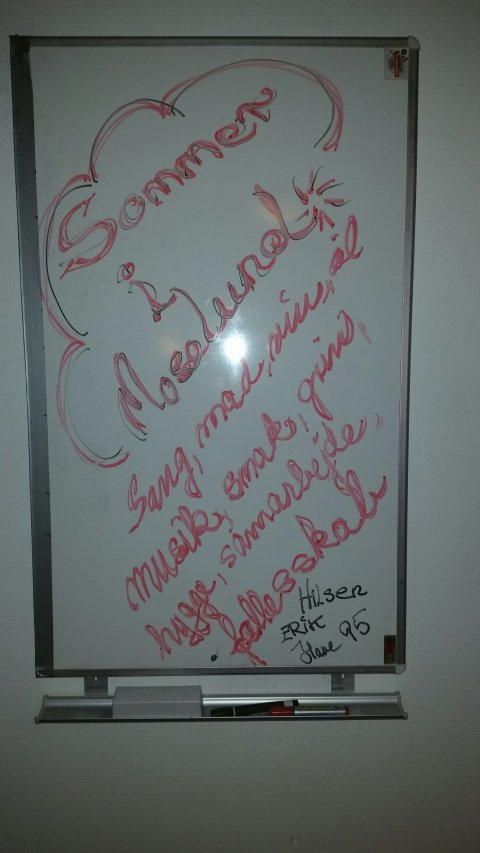 Sommer
i
Moselund
Sang, mad, vin, øl
musik, smak, grin,
hygge, samarbejde,
fællesskab
Hilsen
ERIK
95